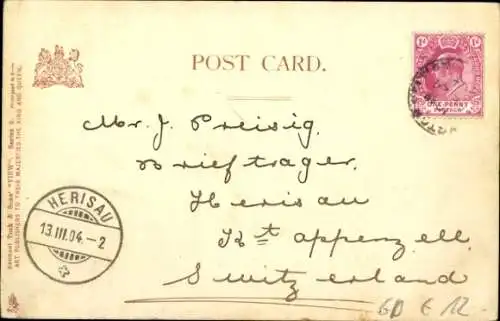 POST CARD.
1d 1d
ONE PENNY
Mr. J. Preisig.
Briefträger.
Herisau
Kt appenzell
Switzerland
HERISAU
13.III.04.-2
Raphael Tuck & Sons' "VIEW"
ART PUBLISHERS TO THEIR MAJESTIES THE KING AND QUEEN.